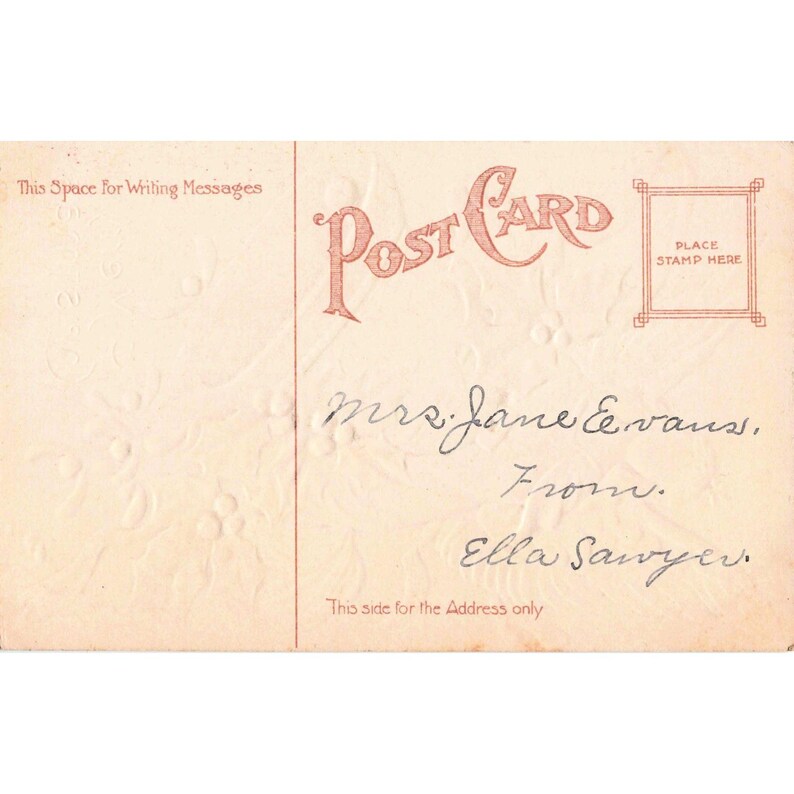 This Space For Writing Messages
POST CARD
PLACE
STAMP HERE
Mrs. Jane Eevans.
From.
Ella Sawyer.
This side for the Address only